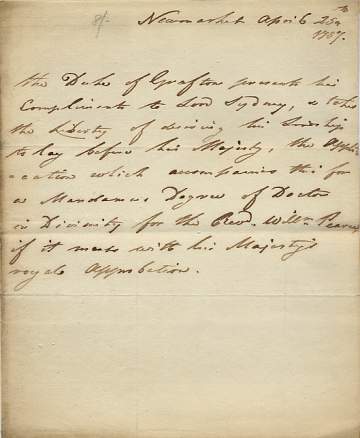 8/-
Newmarket April 25th
1787.
the Duke of Grafton presents his
Compliments to Lord Sydney, & takes
the Liberty of desiring his Lordship
to lay before his Majesty, the Appli
cation which accompanies this for
a Mandamus Degree of Doctor
in Divinity for the Revd. Willm. Pearce,
if it meets with his Majesty's
royal Approbation.